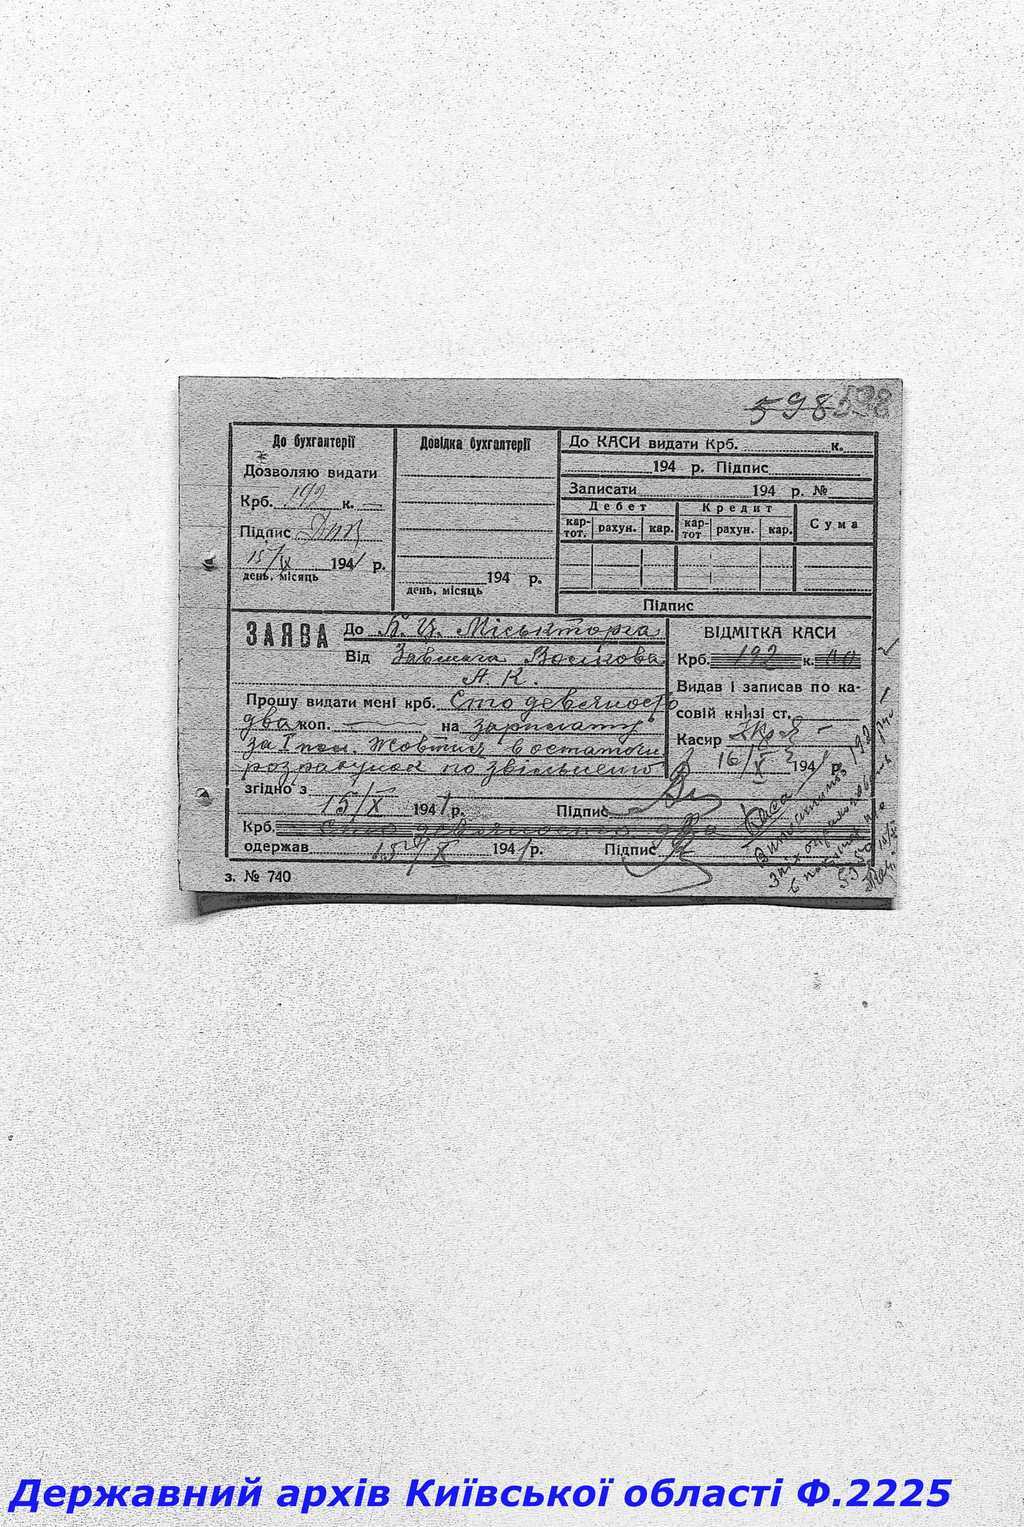 598 598
До бухгалтерії
Дозволяю видати
Крб. 192 к. —
Підпис
15/IX 1941 р.
день, місяць
Довідка бухгалтерії
194 р.
день, місяць
До КАСИ видати Крб. к.
194 р. Підпис
Записати 194 р. №
Дебет Кредит Сума
кар-тот. рахун. кар. кар-тот рахун. кар.
Підпис
ЗАЯВА До Б. Ц. Міськторга
Від Завмага Волкова
А. К.
Прошу видати мені крб. Сто девяносто
два коп. — на зарплату
за I пол. Жовтня в остаточн.
розрахунок по звільненю
згідно з
15/X 1941 р. Підпис
Крб. Сто девяносто два
одержав 15/X 1941 р. Підпис
ВІДМІТКА КАСИ
Крб. 192 к. 00
Видав і записав по ка-
совій книзі ст.
Касир
16/X 1941 р.
з. № 740
Державний архів Київської області Ф.2225